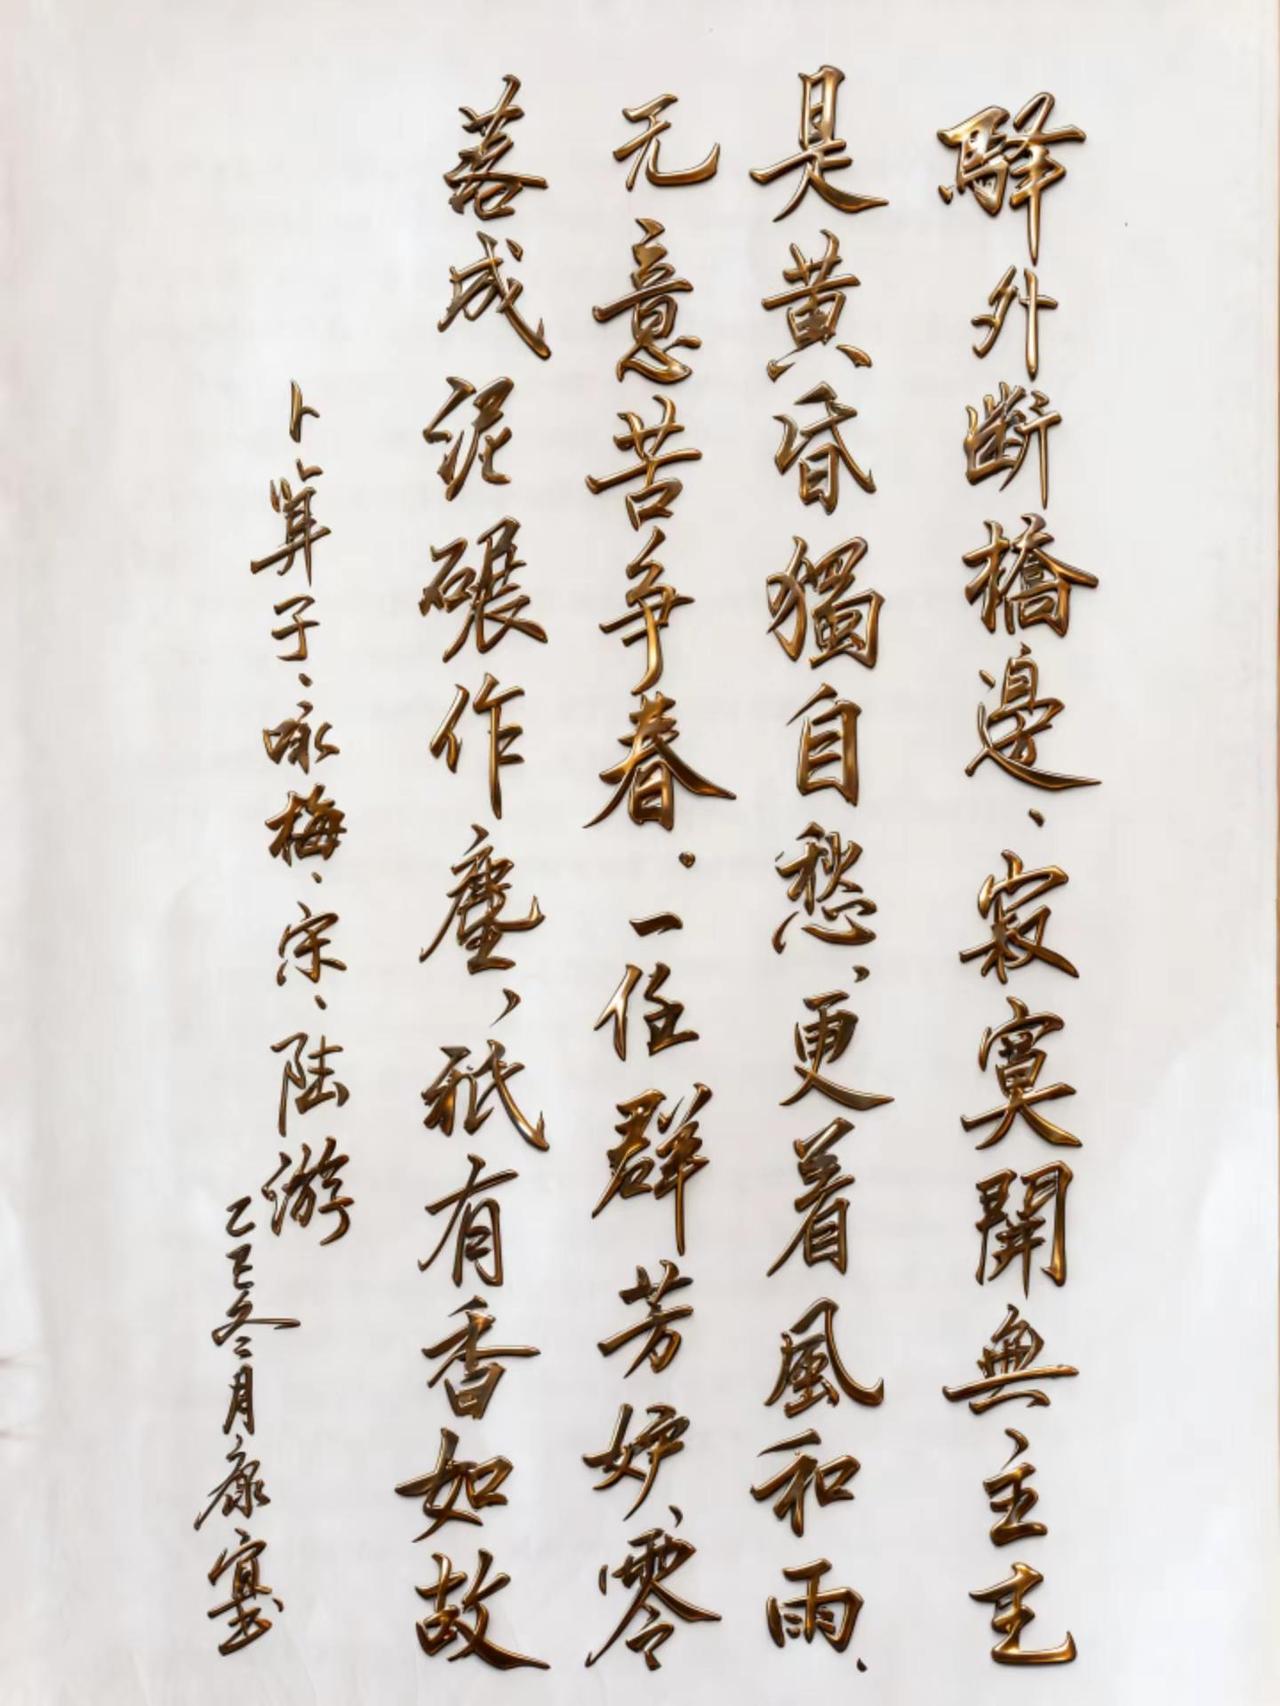 驛外斷橋邊、寂寞開無主主
是黄昏獨自愁、更着風和雨、
无意苦争春.一任群芳妒、零
落成泥碾作塵、祇有香如故
卜算子、咏梅、宋、陆游
乙巳冬月康